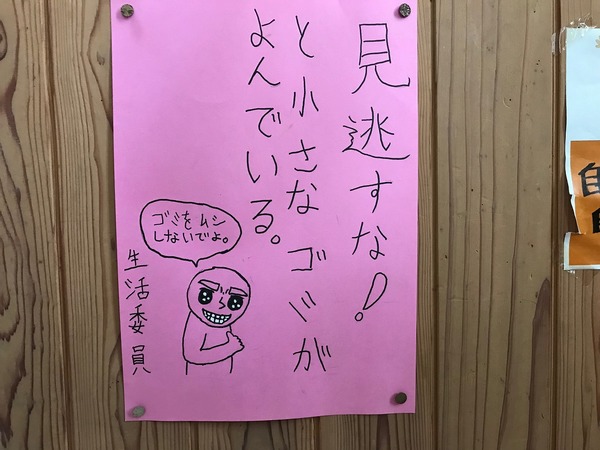 見逃すな!
と小さなゴミが
よんでいる。
ゴミをムシ
しないでよ。
生活委員